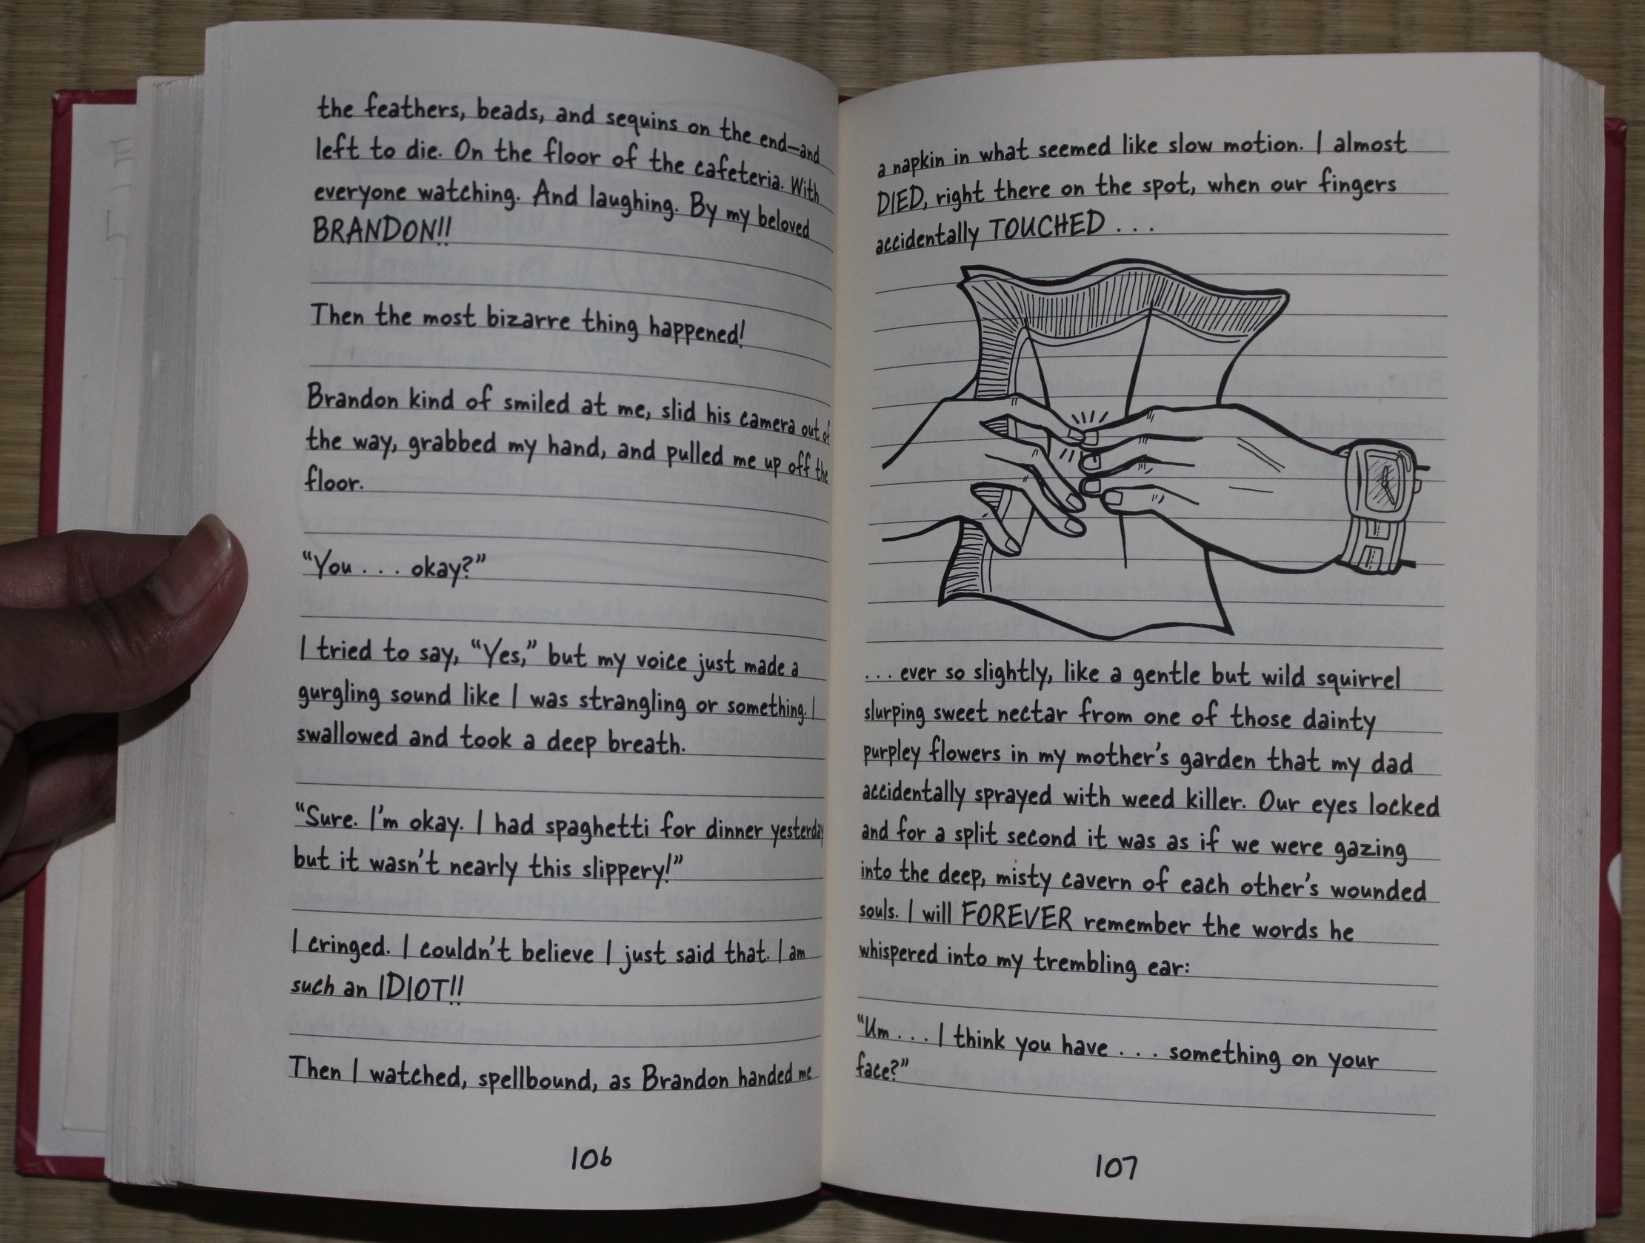 the feathers, beads, and sequins on the end—and
left to die. On the floor of the cafeteria. With
everyone watching. And laughing. By my beloved
BRANDON!!
Then the most bizarre thing happened!
Brandon kind of smiled at me, slid his camera out of
the way, grabbed my hand, and pulled me up off the
floor.
“You . . . okay?”
I tried to say, “Yes,” but my voice just made a
gurgling sound like I was strangling or something. I
swallowed and took a deep breath.
“Sure. I’m okay. I had spaghetti for dinner yesterday
but it wasn’t nearly this slippery!”
I cringed. I couldn’t believe I just said that. I am
such an IDIOT!!
Then I watched, spellbound, as Brandon handed me
106
a napkin in what seemed like slow motion. I almost
DIED, right there on the spot, when our fingers
accidentally TOUCHED . . .
. . . ever so slightly, like a gentle but wild squirrel
slurping sweet nectar from one of those dainty
purpley flowers in my mother’s garden that my dad
accidentally sprayed with weed killer. Our eyes locked
and for a split second it was as if we were gazing
into the deep, misty cavern of each other’s wounded
souls. I will FOREVER remember the words he
whispered into my trembling ear:
“Um . . . I think you have . . . something on your
face?”
107